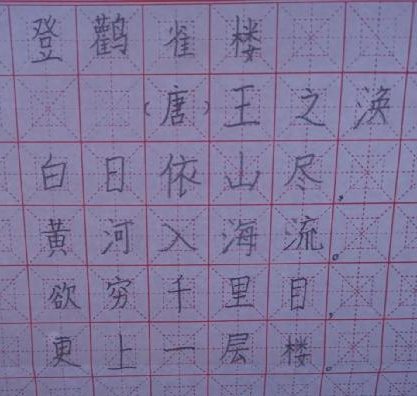 登鹳雀楼
(唐)王之涣
白日依山尽,
黄河入海流。
欲穷千里目,
更上一层楼。